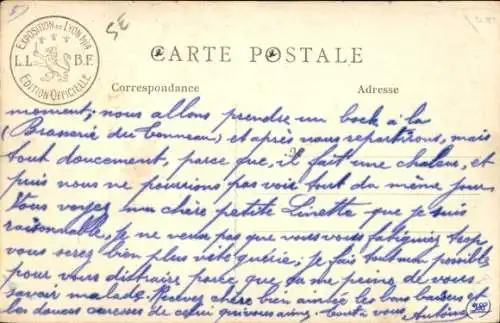 5
5E
EXPOSITION DE LYON 1914
L.L. B.F.
EDITION OFFICIELLE
CARTE POSTALE
Correspondance Adresse
moment; nous allons prendre un bock à la
(Brasserie du Tonneau) et après nous repartirons, mais
tout doucement, parce que, il fait une chaleur, et
puis nous ne pourrions pas voir tout du même jour
Vous voyez ma chère petite Linette que je suis
raisonnable, je ne veux pas que vous vous fatiguiez trop,
vous serez bien plus vite guérie; je fais tout mon possible
pour vous distraire parce que ça me peine de vous
savoir malade. Recevez chère bien aimée les bons baisers et
les douces caresses de celui qui vous aime. tout à vous Antoine
988